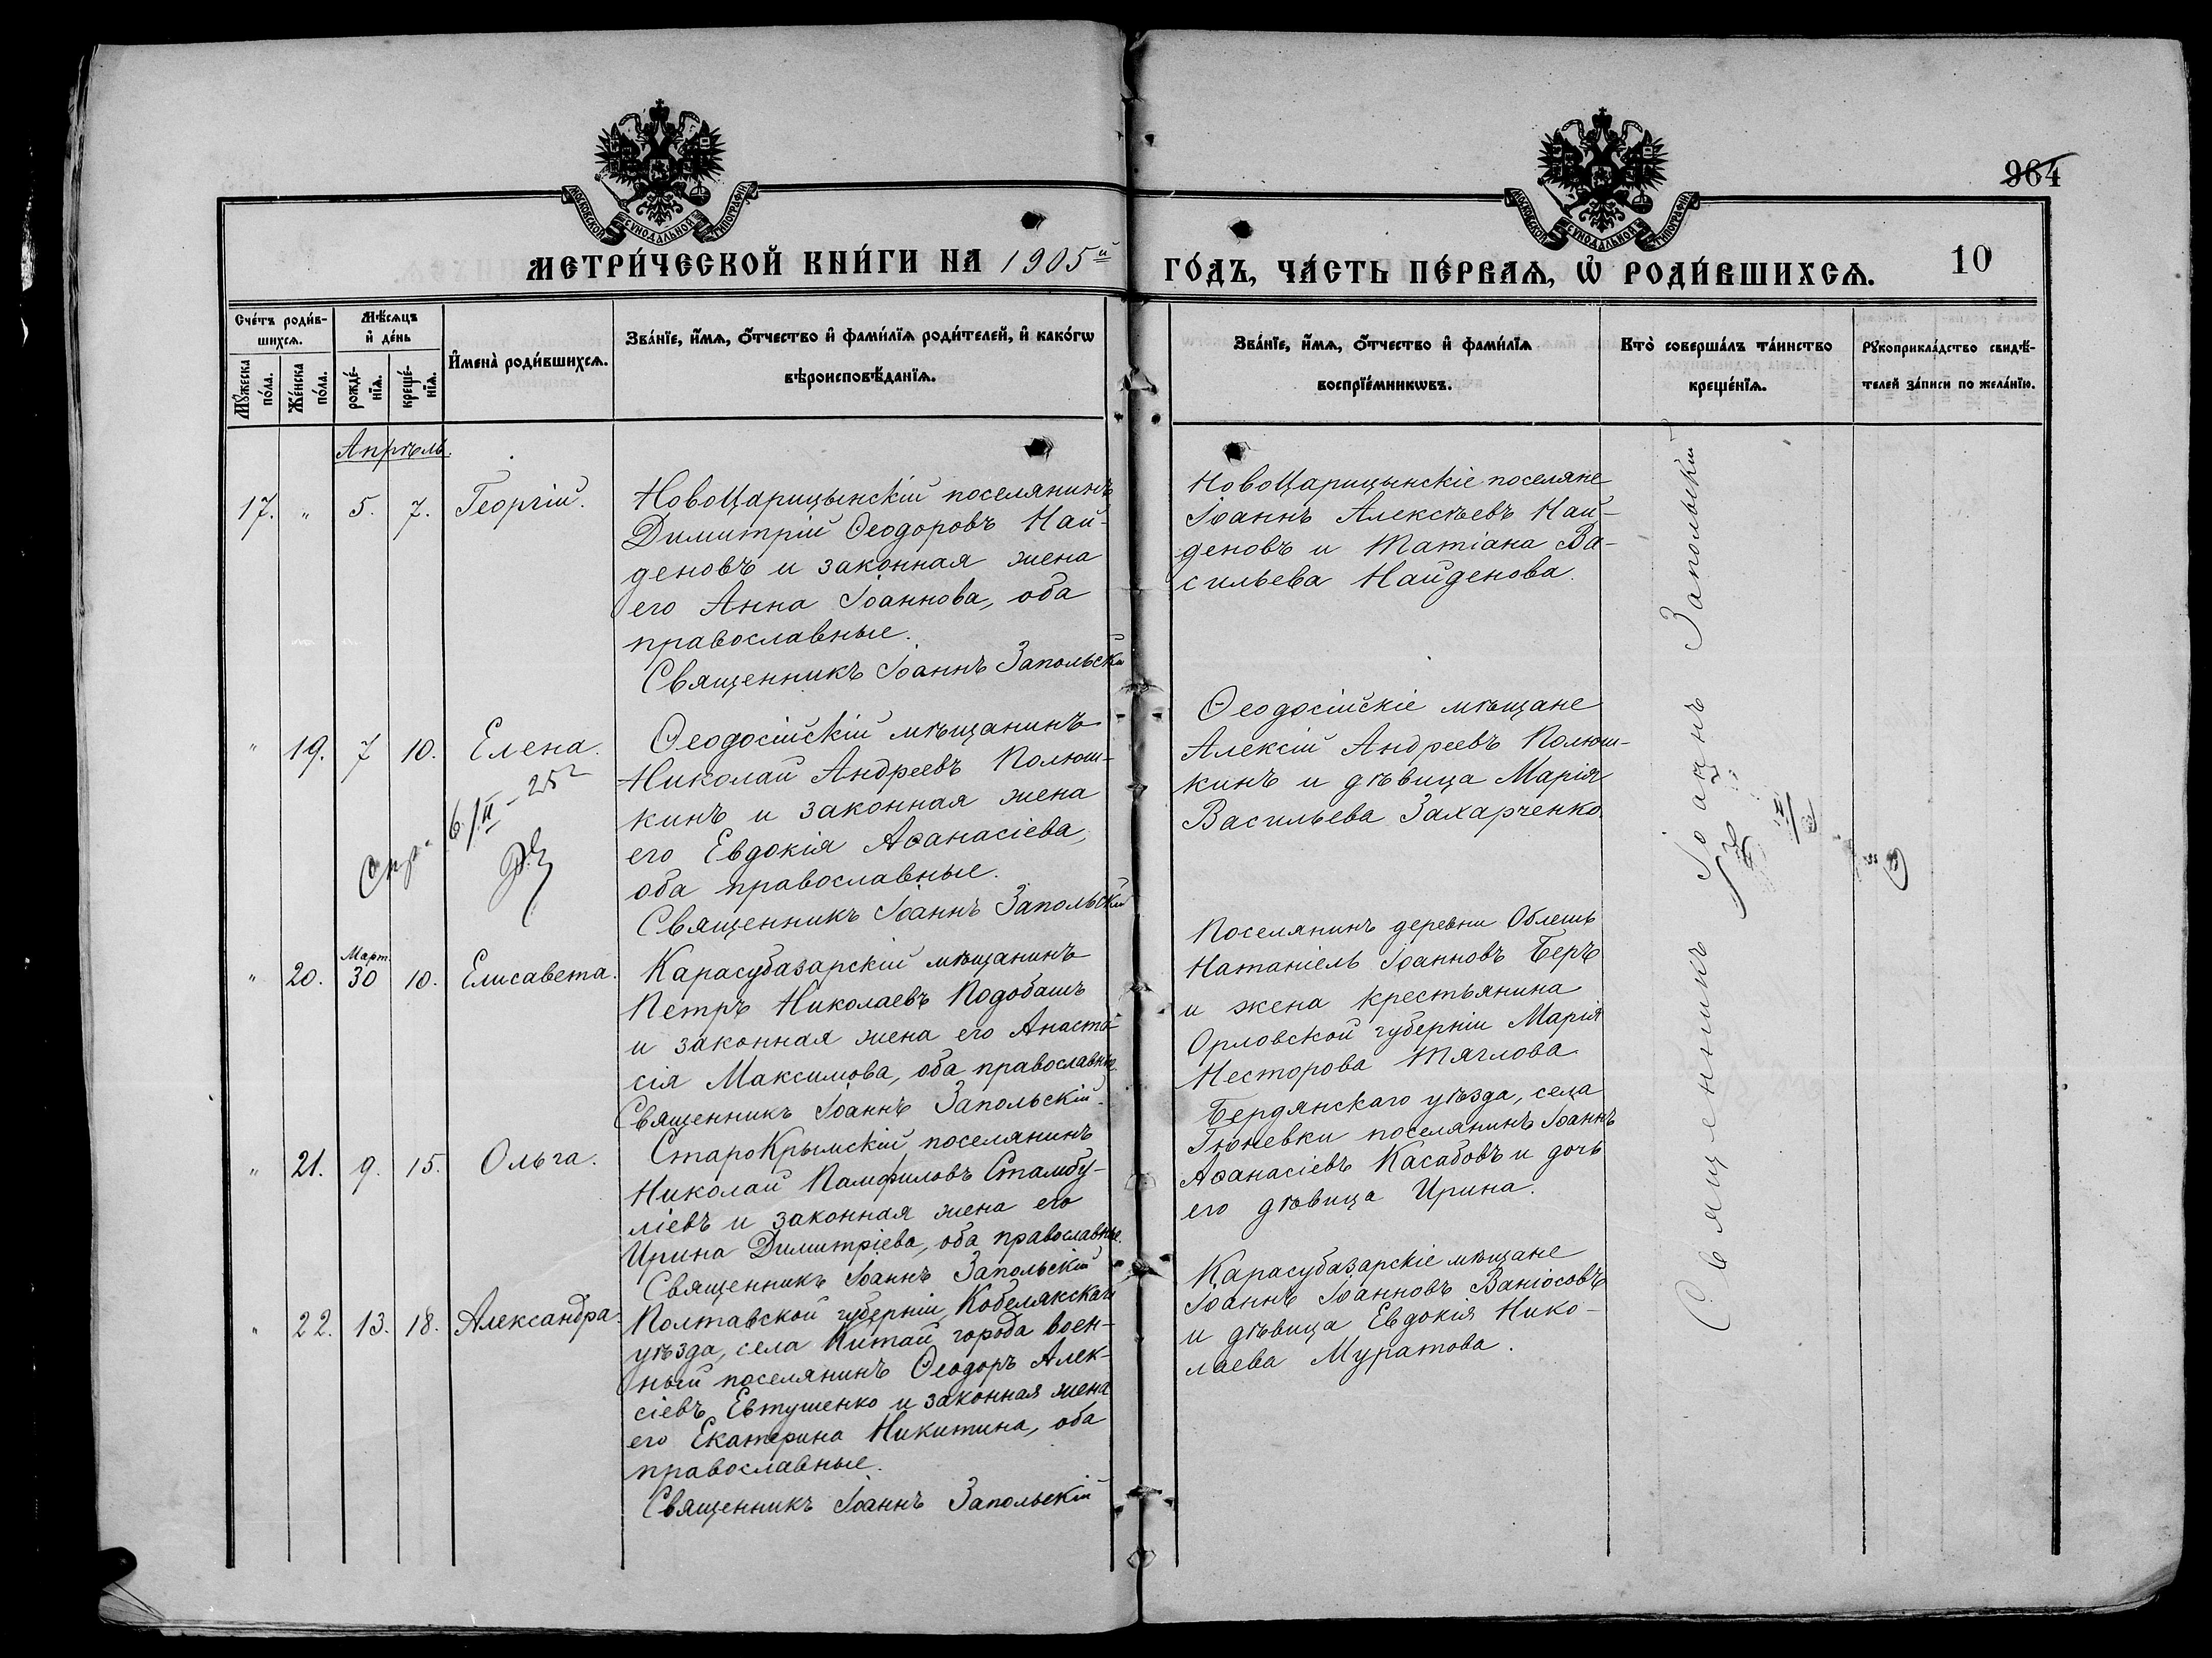 964
10
МОСКОВСКОЙ СѴНОДАЛЬНОЙ ТИПОГРАФІИ
МОСКОВСКОЙ СѴНОДАЛЬНОЙ ТИПОГРАФІИ
МЕТРИ́ЧЕСКОЙ КНИ́ГИ НА 1905й ГО́ДЪ, ЧА́СТЬ ПЕ́РВАѦ, Ѡ҆ РОДИ́ВШИХСѦ.
Сче́тъ роди́в-
шихсѧ.
Мꙋ́жеска
по́ла.
Же́нска
по́ла.
Мѣ́сѧцъ
и҆ де́нь
рожде́-
нїѧ.
креще́-
нїѧ.
И҆мена̀ роди́вшихсѧ.
Зва́нїе, и҆́мѧ, ѻ҆́тчество и҆ фами́лїѧ роди́телей, и҆ како́гѡ
вѣроисповѣ́данїѧ.
Зва́нїе, и҆́мѧ, ѻ҆́тчество и҆ фами́лїѧ
воспрїе́мникѡвъ.
Кто̀ соверша́лъ та́инство
креще́нїѧ.
Рꙋкоприкла́дство свидѣ́-
телей за́писи по жела́нїю.
Апрѣль.
17. " 5. 7. Георгій.
НовоЦарицынскій поселянинъ
Димитрій Ѳеодоровъ Най-
деновъ и законная жена
его Анна Іоаннова, оба
православные.
Священникъ Іоаннъ Запольскій
НовоЦарицынскіе поселяне
Іоаннъ Алексѣевъ Най-
деновъ и Татіана Ва-
сильева Найденова.
" 19. 7 10. Елена.
Спр. 6/II-25г
Ѳеодосійскій мѣщанинъ
Николай Андреевъ Полюш-
кинъ и законная жена
его Евдокія Аѳанасіева,
оба православные.
Священникъ Іоаннъ Запольскій
Ѳеодосійскіе мѣщане
Алексій Андреевъ Полюш-
кинъ и дѣвица Марія
Васильева Захарченко.
" 20. Март. 30 10. Елисавета.
Карасубазарскій мѣщанинъ
Петръ Николаевъ Подобашъ
и законная жена его Анаста-
сія Максимова, оба православные.
Священникъ Іоаннъ Запольскій.
Поселянинъ деревни Облешъ
Натаніель Іоанновъ Беръ
и жена крестьянина
Орловской губерніи Марія
Несторова Тяглова
" 21. 9. 15. Ольга.
СтароКрымскій поселянинъ
Николай Памфиловъ Стамбу-
ліевъ и законная жена его
Ирина Димитріева, оба православные.
Священникъ Іоаннъ Запольскій
Бердянскаго уѣзда, села
Гюневки поселянинъ Іоаннъ
Аѳанасіевъ Касабовъ и дочь
его дѣвица Ирина.
" 22. 13. 18. Александра.
Полтавской губерніи, Кобелякскаго
уѣзда, села Китай города воен-
ный поселянинъ Ѳеодоръ Алек-
сіевъ Евтушенко и законная жена
его Екатерина Никитина, оба
православные.
Священникъ Іоаннъ Запольскій
Карасубазарскіе мѣщане
Іоаннъ Іоанновъ Ваніосовъ
и дѣвица Евдокія Нико-
лаева Муратова.
Священникъ Іоаннъ Запольскій